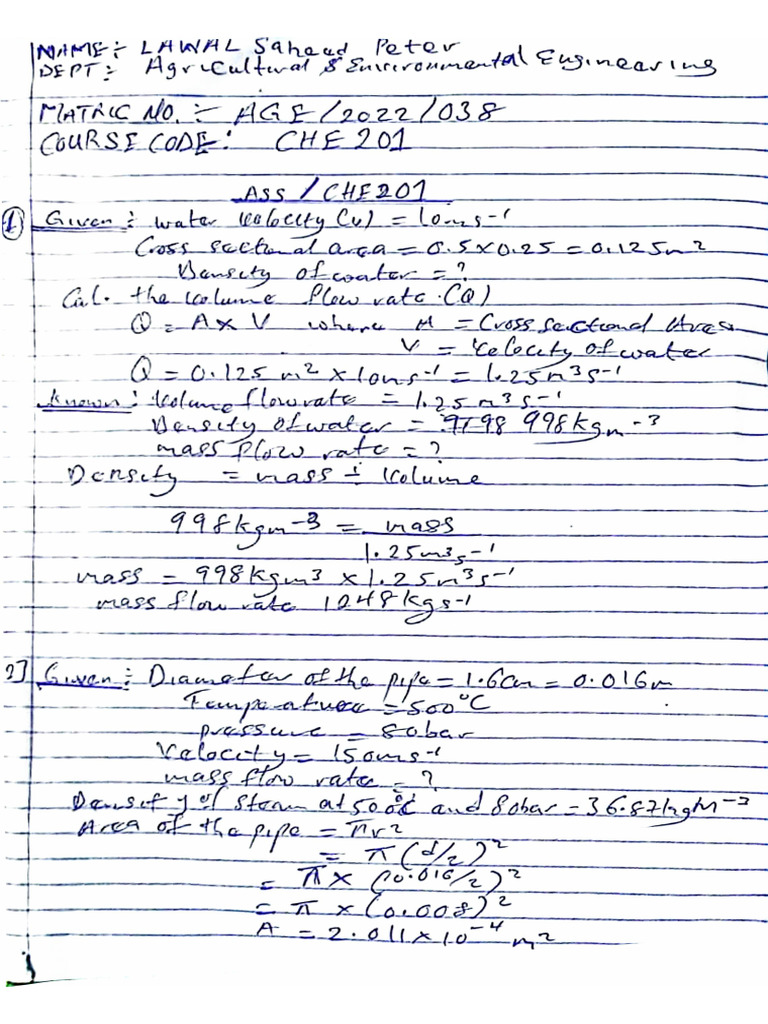 NAME:- LAWAL Saheed Peter
DEPT:- Agricultural & Environmental Engineering
MATRIC NO. :- AGE/2022/038
COURSE CODE: CHE 201
ASS / CHE201
1) Given :- water velocity (v) = 10ms-1
Cross sectional area = 0.5×0.25 = 0.125m2
Density of water = ?
Cal. the volume flow rate. (Q)
Q = A × V where A = Cross sectional Area
V = Velocity of water
Q = 0.125 m2 × 10ms-1 = 1.25m3s-1
Known : Volume flow rate = 1.25m3s-1
Density of water = 998kgm-3
mass flow rate = ?
Density = mass ÷ Volume
998kgm-3 = mass
1.25m3s-1
mass = 998kgm3 × 1.25m3s-1
mass flow rate 1248kgs-1
2] Given :- Diameter of the pipe = 1.6cm = 0.016m
Temperature = 500°C
pressure = 80bar
Velocity = 150ms-1
mass flow rate = ?
Density of steam at 500°C and 80bar = 36.87kgm-3
Area of the pipe = πr2
= π(d/2)2
= π × (0.016/2)2
= π × (0.008)2
A = 2.011×10-4 m2